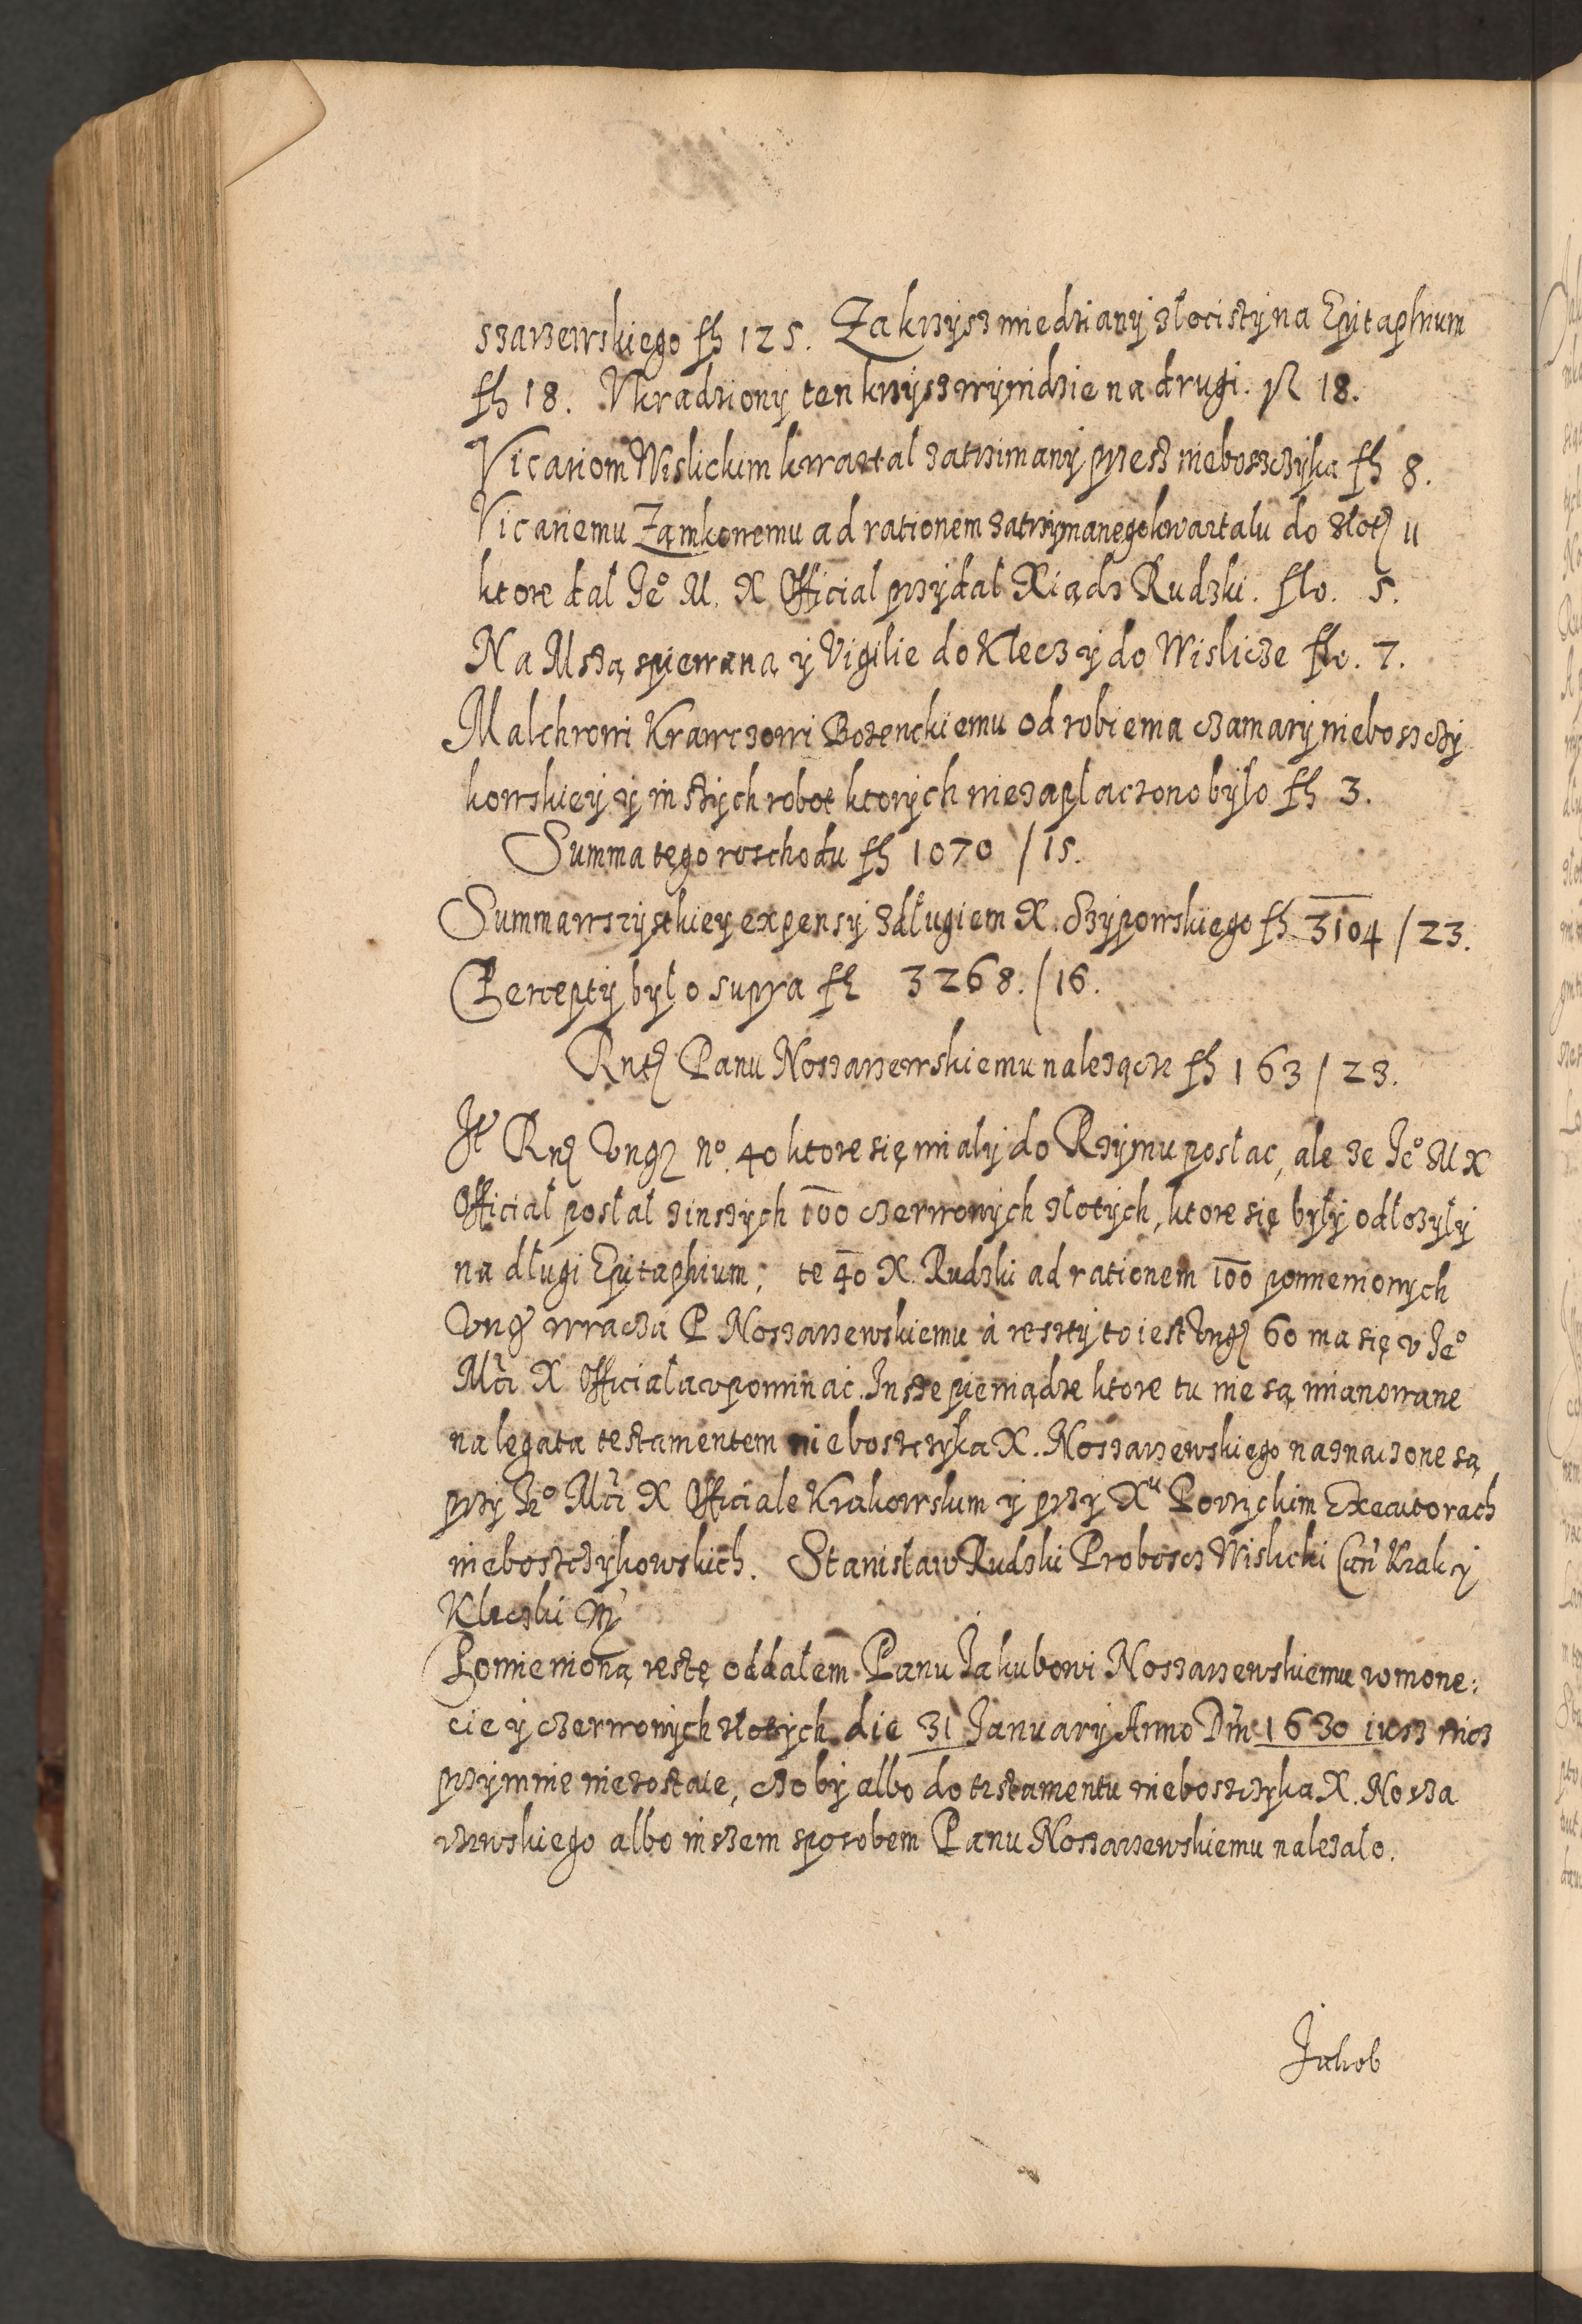 szarzewskiego fl 125. Za krzysz miedziany złocisty na Epitaphium
fl 18. Vkradziony ten krzysz wynidzie na drugi. fl 18.
Vicariom Wislickim kwartal zatrzimany przesz nieboszczyka fl 8.
Vicariemu Zamkowemu ad rationem zatrzymanego kwartalu do złot 11
ktore dał Je° M. X Official przydał Xiądz Rudzki. flo. 5.
Na Mszą spiewaną y Vigilie do Klecz y do Wislicze flo. 7.
Malchrowi Krawczowi Bozenckiemu od robienia czamary nieboszczy
kowskiey y inszych robot ktorych niezaplaczono bylo fl 3.
Summa tego roschodu fl 1070 / 15.
Summa wszystkiey expensy zdługiem X. Szypowskiego fl 3104 / 23.
Percepty bylo supra fl 3268. / 16.
Rnt Panu Noszarzewskiemu nalezącze fl 163 / 23.
It Rn Vng N°. 40 ktore się miały do Rzymu posłac, ale ze Je° M X
Official posłał zinszych 100 czerwonych złotych, ktore się były odłozyły
na długi Epitaphium; te 40 X. Rudzki ad rationem 100 pomienionych
Vng wracza P Noszarzewskiemu á reszty to iest Vng 60 ma się v Je°
Mci X Officiala vpominac. Insze pieniądze ktore tu nie są mianowane
na legata testamentem nieboszczyka X. Noszarzewskiego naznaczone są
przy Je° Mci X Officiale Krakowskim y przy Xu Powzickim Executorach
nieboszczykowskich. Stanisław Rudzki Proboscz Wislicki Can Krak y
Kleczki
Pomienioną resztę oddałem Panu Jakubowi Noszarzewskiemu w mone:
cie y czerwonych złotych die 31 January Anno Dni 1630 iusz nicz
przymnie niezostaie, czoby albo do testamentu nieboszczyka X. Nosza
rzewskiego albo inszem sposobem Panu Noszarzewskiemu nalezalo.
Jakob